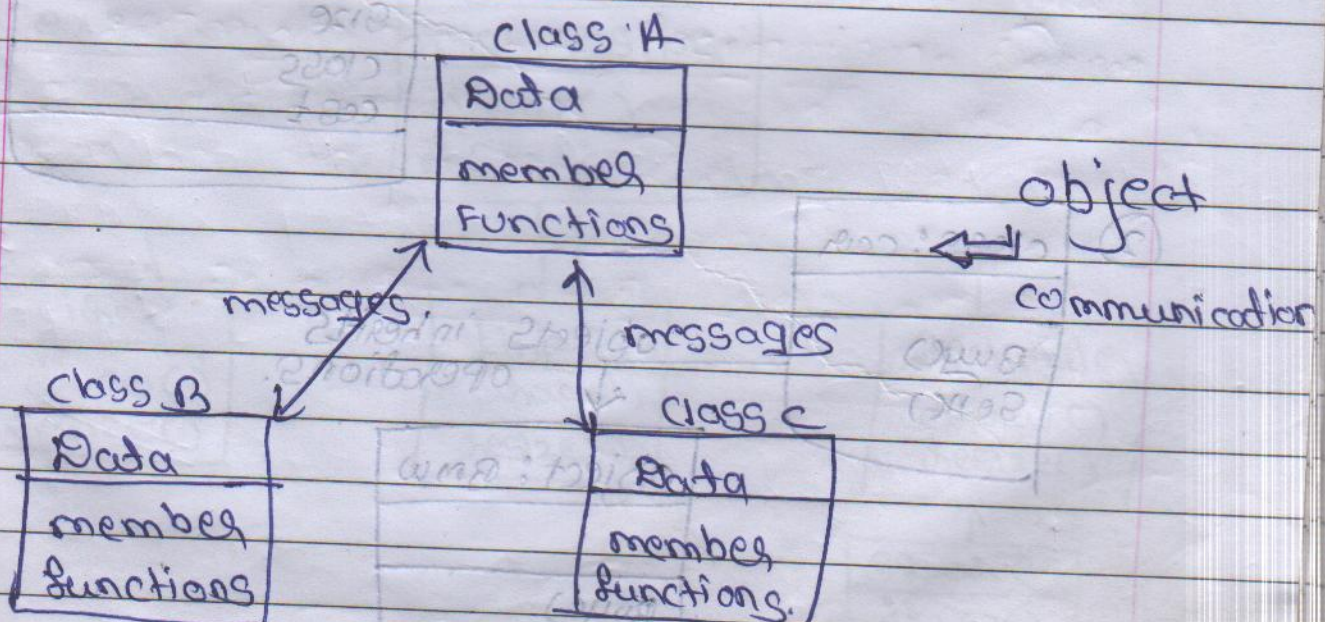 class A
Data
member
Functions
object
communication
messages.
messages
class B
Data
member
functions
class C
Data
member
functions.